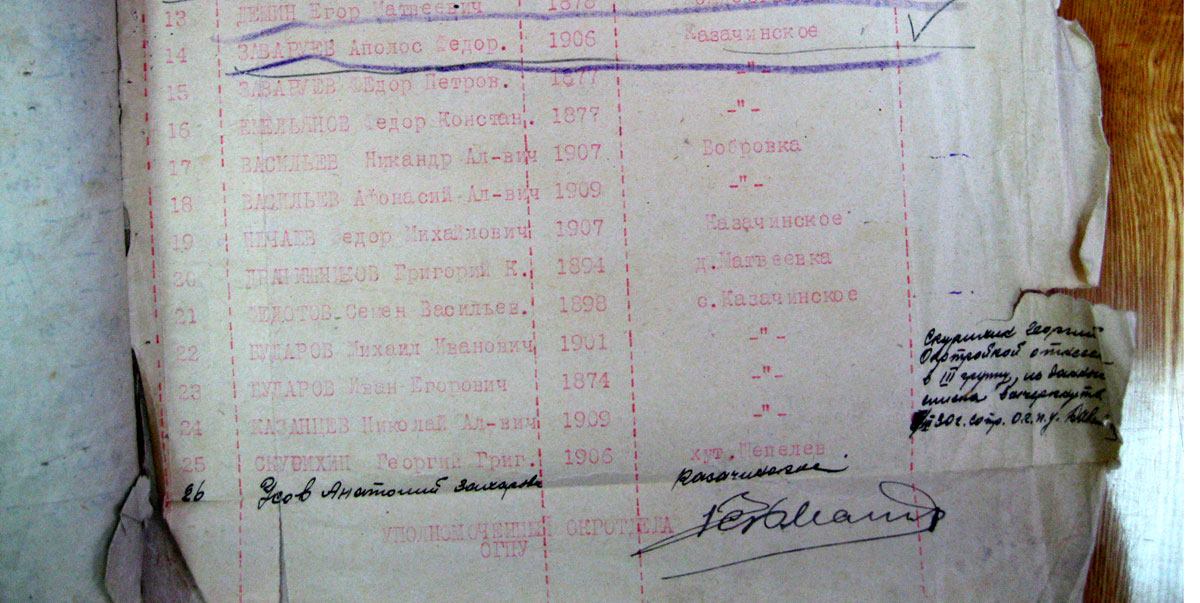 13 ДЕМИН Егор Матвеевич 1878
14 ЗАВАРУЕВ Аполос Федор. 1906 Казачинское
15 ЗАВАРУЕВ Федор Петров. 1877 -"-
16 ЕМЕЛЬЯНОВ Федор Констан. 1877 -"-
17 ВАСИЛЬЕВ Никандр Ал-вич 1907 Бобровка
18 ВАСИЛЬЕВ Афонасий Ал-вич 1909 -"-
19 НЕЧАЕВ Федор Михайлович 1907 Казачинское
20 Григорий К. 1894 д.Матвеевка
21 ФЕДОТОВ Семен Васильев. 1898 с.Казачинское
22 БУДАРОВ Михаил Иванович 1901 -"-
23 БУДАРОВ Иван Егорович 1874 -"-
24 КАЗАНЦЕВ Николай Ал-вич 1909 -"-
25 СКУРИХИН Георгий Григ. 1906 хут.Шепелев
26 Усов Анатолий Захарович Казачинское
УПОЛНОМОЧЕННЫЙ ОКРОТДЕЛА
ОГПУ
Скурихин Георгий
Окртройкой отнесен
в III группу, из данного
списка вычеркнуть
30 г. сотр. О.Г.П.У.